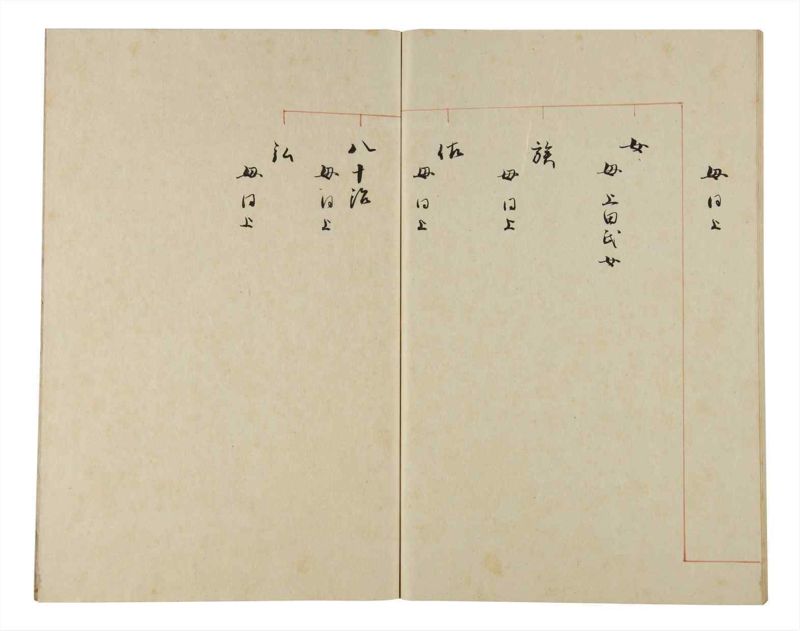 母同上
女
母上田氏女
族
母同上
佐
母同上
八十治
母同上
弘
母同上